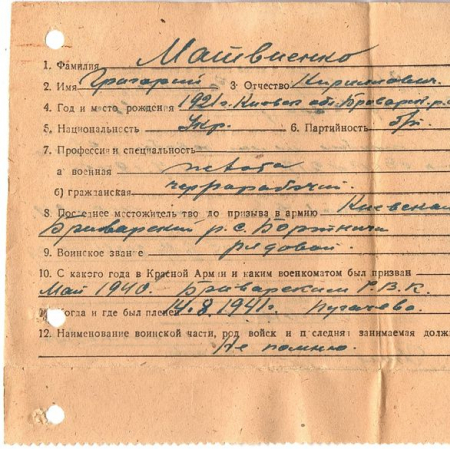 1. Фамилия Матвиенко
2. Имя Григорий 3 Отчество Кириллович
4. Год и место рождения 1921 г. Киевск. обл. Броварск. р.
5. Национальность Укр. 6. Партийность б/п.
7. Профессия и специальность
а военная пехота
б) гражданская чернорабочий.
8 Последнее местожитель тво до призыва в армию Киевская
Броварский р. с. Бортничи
9. Воинское звание рядовой.
10. С какого года в Красной Армии и каким военкоматом был призван
Май 1940. Броварским Р.В.К.
Когда и где был пленен 14.8.1941 г. Пугачево.
12. Наименование воинской части, род войск и п следняя занимаемая долж
Не помню.